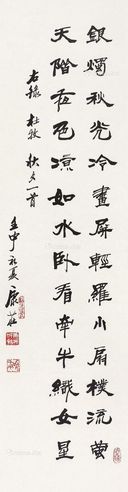 銀燭秋光冷畫屏輕羅小扇撲流螢
天階夜色涼如水卧看牽牛織女星
右錄杜牧秋夕一首
壬申初夏康莊